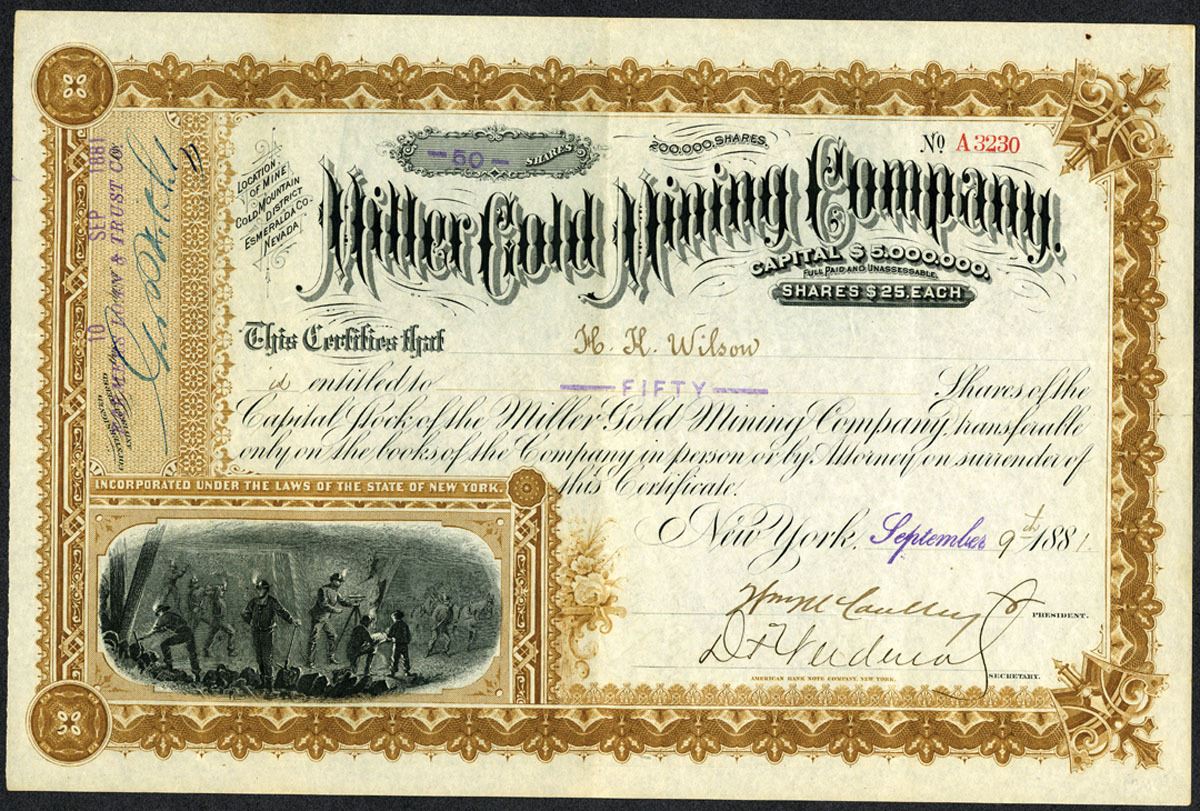 -50- SHARES
200,000 SHARES.
No A3230
LOCATION
OF MINE
GOLD MOUNTAIN
DISTRICT
ESMERALDA CO.
NEVADA.
Miller Gold Mining Company.
CAPITAL $5,000,000.
FULL PAID AND UNASSESSABLE.
SHARES $25. EACH
This Certifies that H. H. Wilson
is entitled to FIFTY Shares of the
Capital Stock of the Miller Gold Mining Company, transferable
only on the books of the Company in person or by Attorney on surrender of
this Certificate.
New York, September 9th 1881.
PRESIDENT.
SECRETARY.
AMERICAN BANK NOTE COMPANY, NEW YORK.
INCORPORATED UNDER THE LAWS OF THE STATE OF NEW YORK.
10 SEP 1881
LOAN & TRUST CO.
COUNTERSIGNED